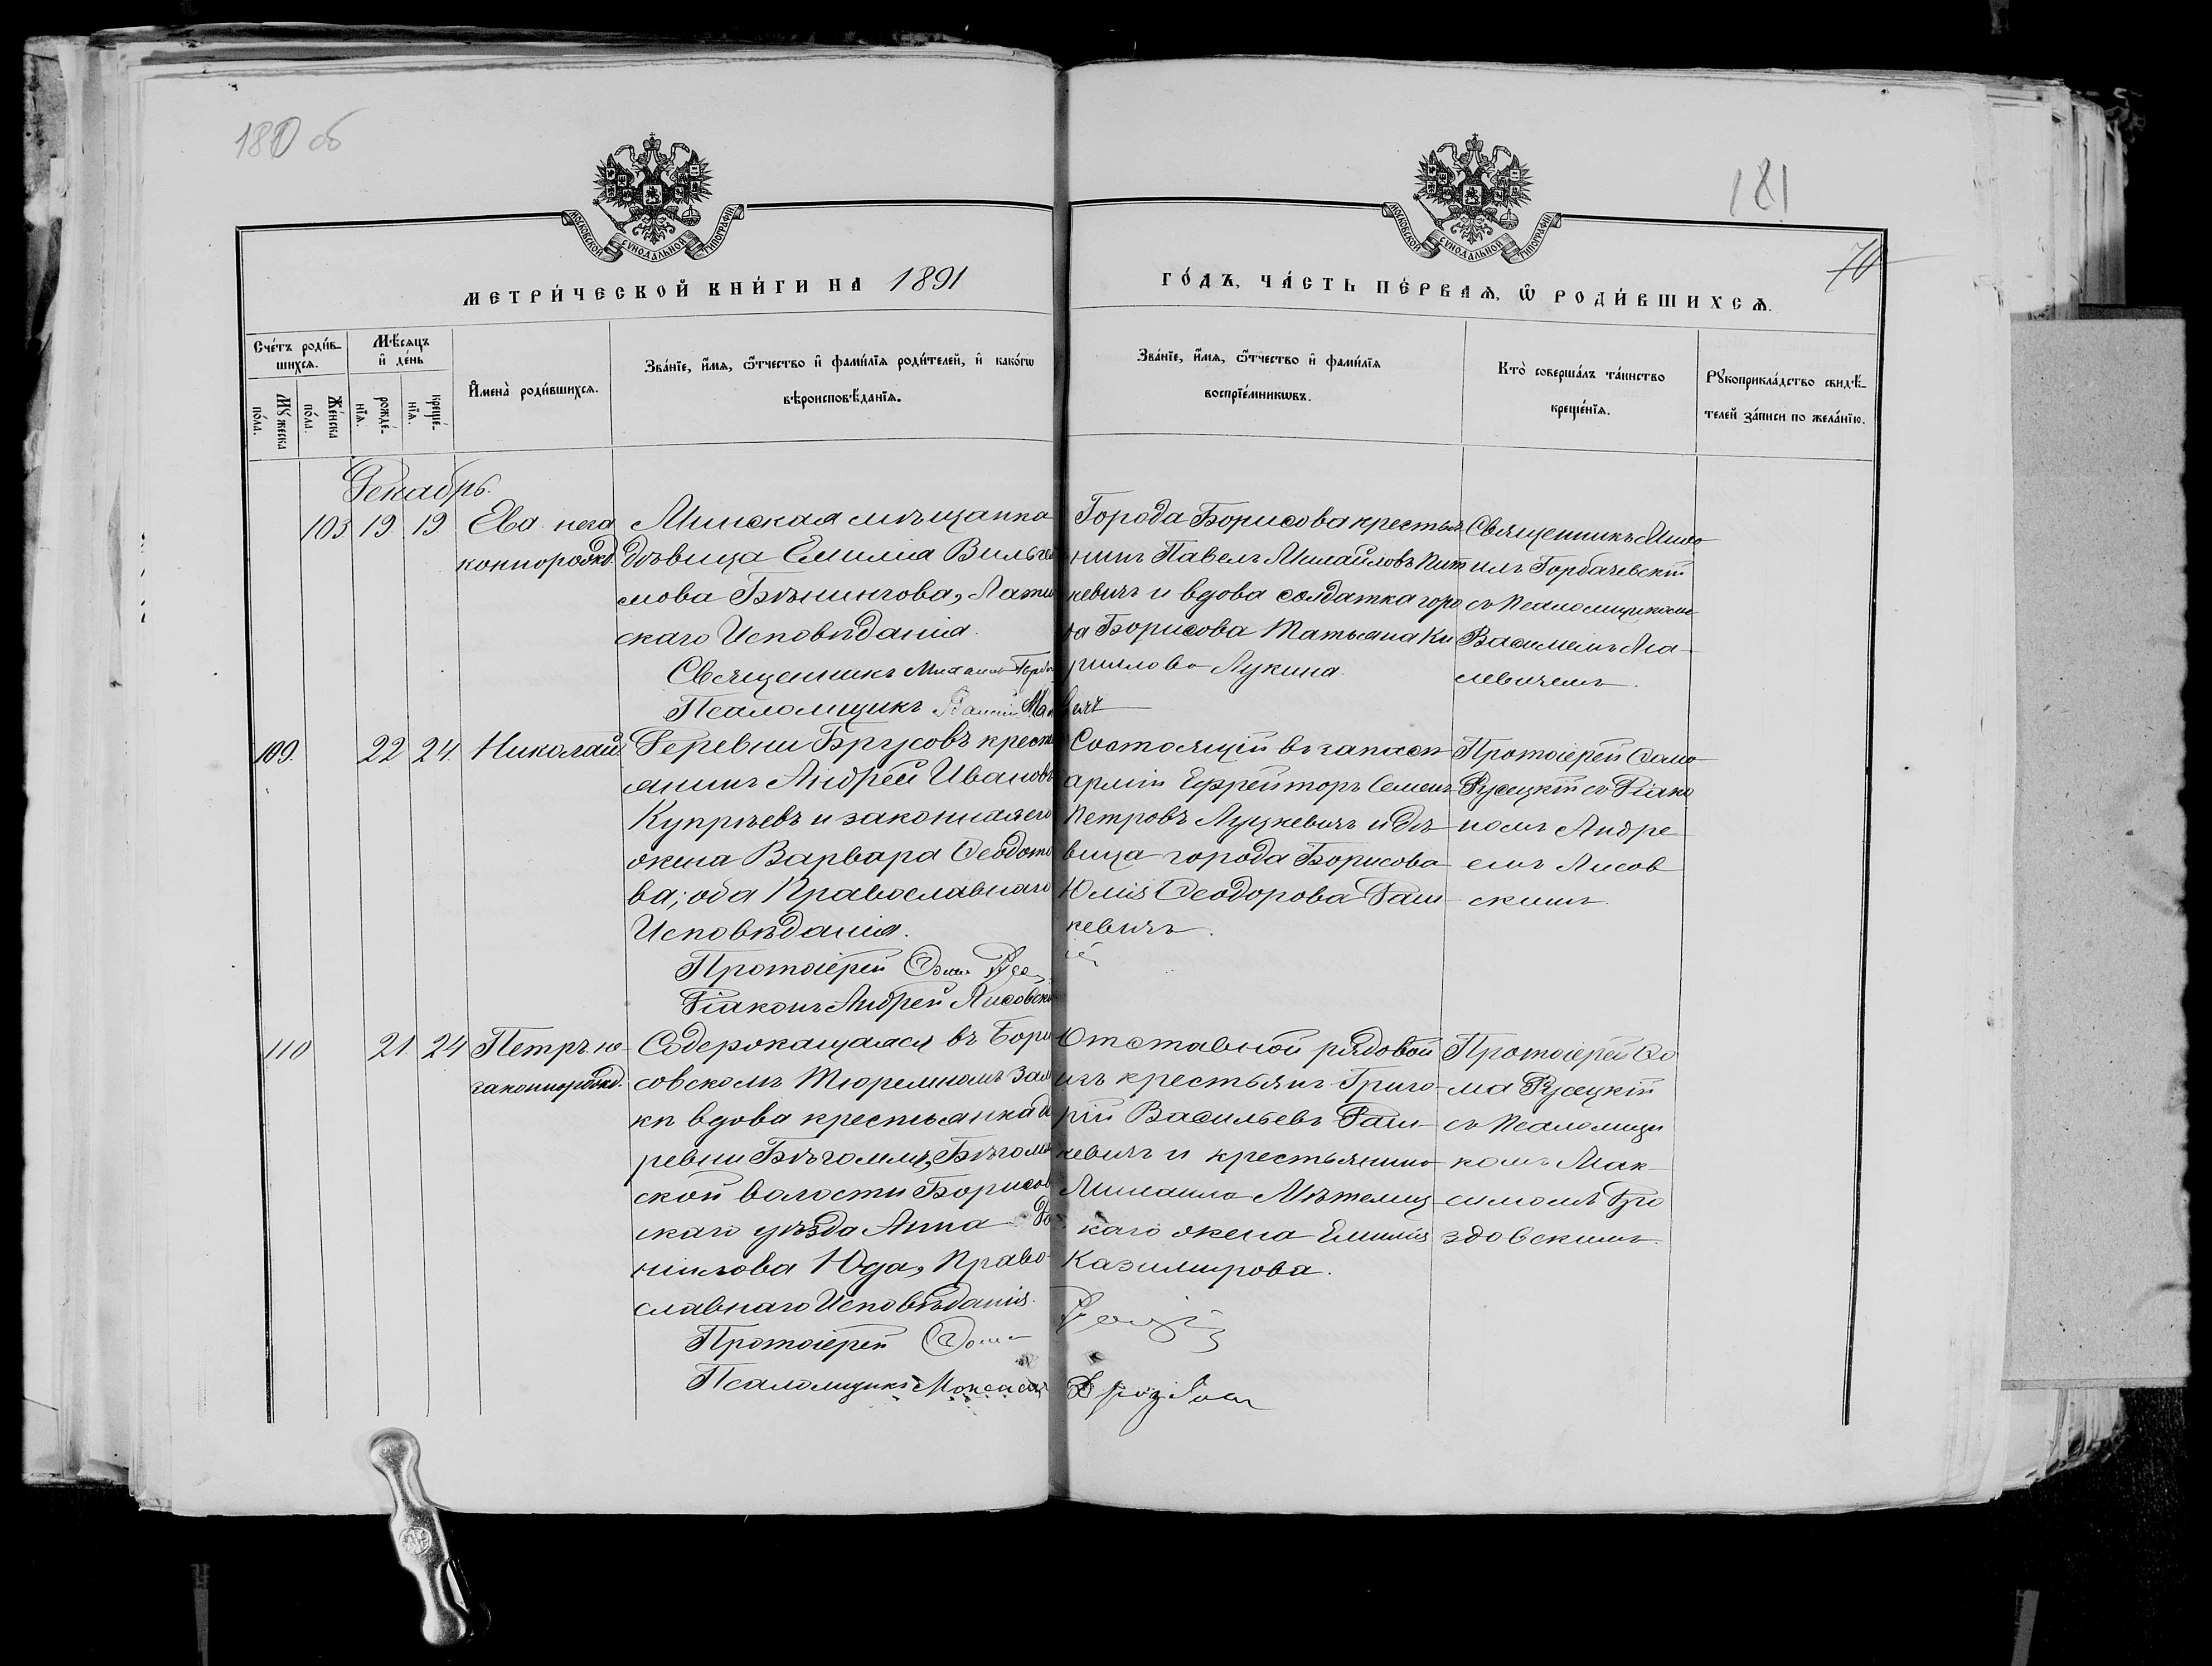 180 об
181
70
МОСКОВСКОЙ СУНОДАЛЬНОЙ ТИПОГРАФИИ
МОСКОВСКОЙ СУНОДАЛЬНОЙ ТИПОГРАФИИ
МЕТРИ́ЧЕСКОЙ КНИ́ГИ НА 1891
ГО́ДЪ, ЧА́СТЬ ПЕ́РВАѦ, Ѿ РОДИ́ВШИХСѦ.
Сче́тъ роди́в-
шихсѧ.
Мѣ́сѧцъ
и҆ де́нь
Мꙋ́жеска
по́ла.
Же́нска
по́ла.
рожде́-
нїѧ.
креще́-
нїѧ.
И҆мена̀ роди́вшихсѧ.
Зва́нїе, и҆́мѧ, ѻ҆́тчество и҆ фами́лїѧ роди́телей, и҆ како́гѡ
вѣроисповѣ́данїѧ.
Зва́нїе, и҆́мѧ, ѻ҆́тчество и҆ фами́лїѧ
воспрїе́мникѡвъ.
Кто̀ соверша́лъ та́инство
креще́нїѧ.
Рꙋкоприкла́дство свидѣ́-
телей за́писи по жела́нїю.
Декабрь.
103 19 19 Ева неза
коннорожд.
Минская мѣщанка
дѣвица Емилія Вильгел
мова Бѣнингова, Латин
скаго Исповѣданія.
Священникъ Михаилъ Горба
Псаломщикъ Василій Мал
Города Борисова крестья
нинъ Павелъ Михайловъ Пит
кевичъ и вдова солдатка горо
да Борисова Татьяна Ки
риллова Лукина
Священникъ Миха
илъ Горбачевскій
съ Псаломщикомъ
Василіемъ Ма-
левичемъ.
109. 22 24. Николай
Деревни Брусовъ кресть
янинъ Андрей Ивановъ
Купрѣевъ и законная его
жена Варвара Ѳеодото
ва; оба Православнаго
Исповѣданія.
Протоіерей Ѳома
Діаконъ Андрей Лисовскій
Состоящій въ запасѣ
арміи Ефрейторъ Семенъ
Петровъ Луцкевичъ и дѣ-
вица города Борисова
Юлія Ѳеодорова Даш-
кевичъ.
Протоіерей Ѳома
Русецкій съ Діако
номъ Андре-
емъ Лисов
скимъ.
110 21. 24 Петръ не-
законнорожд.
Содержащаяся въ Бори
совскомъ Тюремномъ Зам
кѣ вдова крестьянка де
ревни Бѣгомля, Бѣгомль
ской волости Борисов
скаго уѣзда Анна До
ніилова Юда, Право-
славнаго Исповѣданія.
Протоіерей Ѳома
Псаломщикъ Максимъ
Отставной рядовой
изъ крестьянъ Григо-
рій Васильевъ Даш-
кевичъ и крестьянина
Михаила Мѣтелиц
каго жена Емилія
Казимирова.
Протоіерей Ѳо
ма Русецкій
съ Псаломщи
комъ Мак-
симомъ Гро
здовскимъ.